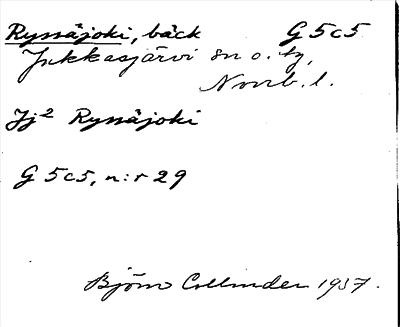 Ryssäjoki, bäck G 5c5
Jukkasjärvi sn o. tg,
Norrb. l.
Jj² Ryssäjoki
G 5c5, n:r 29
Björn Collinder 1937.